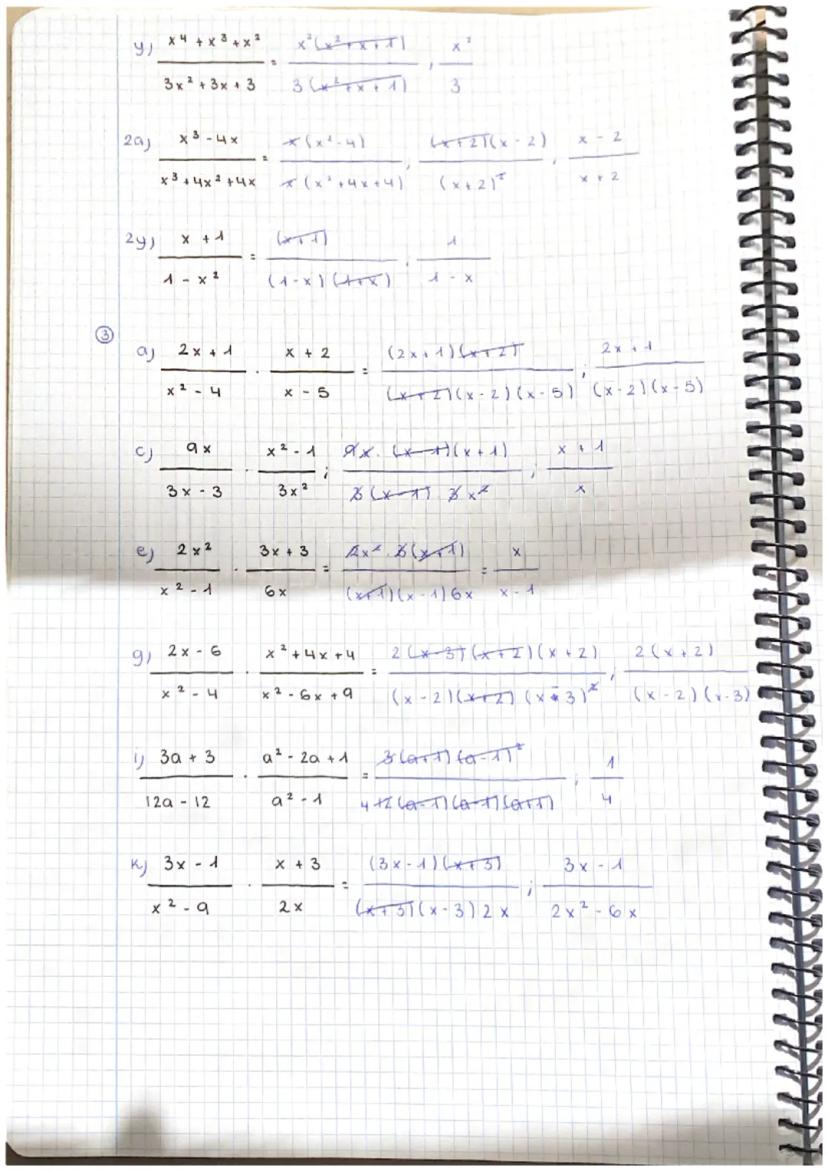 y) x⁴ + x³ + x² / 3x² + 3x + 3 = x²(x² + x + 1) / 3(x² + x + 1) ; x² / 3
2a) x³ - 4x / x³ + 4x² + 4x = x(x² - 4) / x(x² + 4x + 4) ; (x + 2)(x - 2) / (x + 2)² ; x - 2 / x + 2
2y) x + 1 / 1 - x² = (x + 1) / (1 - x)(1 + x) ; 1 / 1 - x
③
a) 2x + 1 / x² - 4 · x + 2 / x - 5 = (2x + 1)(x + 2) / (x + 2)(x - 2)(x - 5) ; 2x + 1 / (x - 2)(x - 5)
c) 9x / 3x - 3 · x² - 1 / 3x² ; 9x · (x - 1)(x + 1) / 3(x - 1) · 3x² ; x + 1 / x
e) 2x² / x² - 1 · 3x + 3 / 6x = 2x² · 3(x + 1) / (x + 1)(x - 1)6x = x / x - 1
g) 2x - 6 / x² - 4 · x² + 4x + 4 / x² - 6x + 9 = 2(x - 3)(x + 2)(x + 2) / (x - 2)(x + 2)(x - 3)² ; 2(x + 2) / (x - 2)(x - 3)
i) 3a + 3 / 12a - 12 · a² - 2a + 1 / a² - 1 = 3(a + 1)(a - 1)² / 4 12(a - 1)(a - 1)(a + 1) ; 1 / 4
k) 3x - 1 / x² - 9 · x + 3 / 2x = (3x - 1)(x + 3) / (x + 3)(x - 3)2x ; 3x - 1 / 2x² - 6x